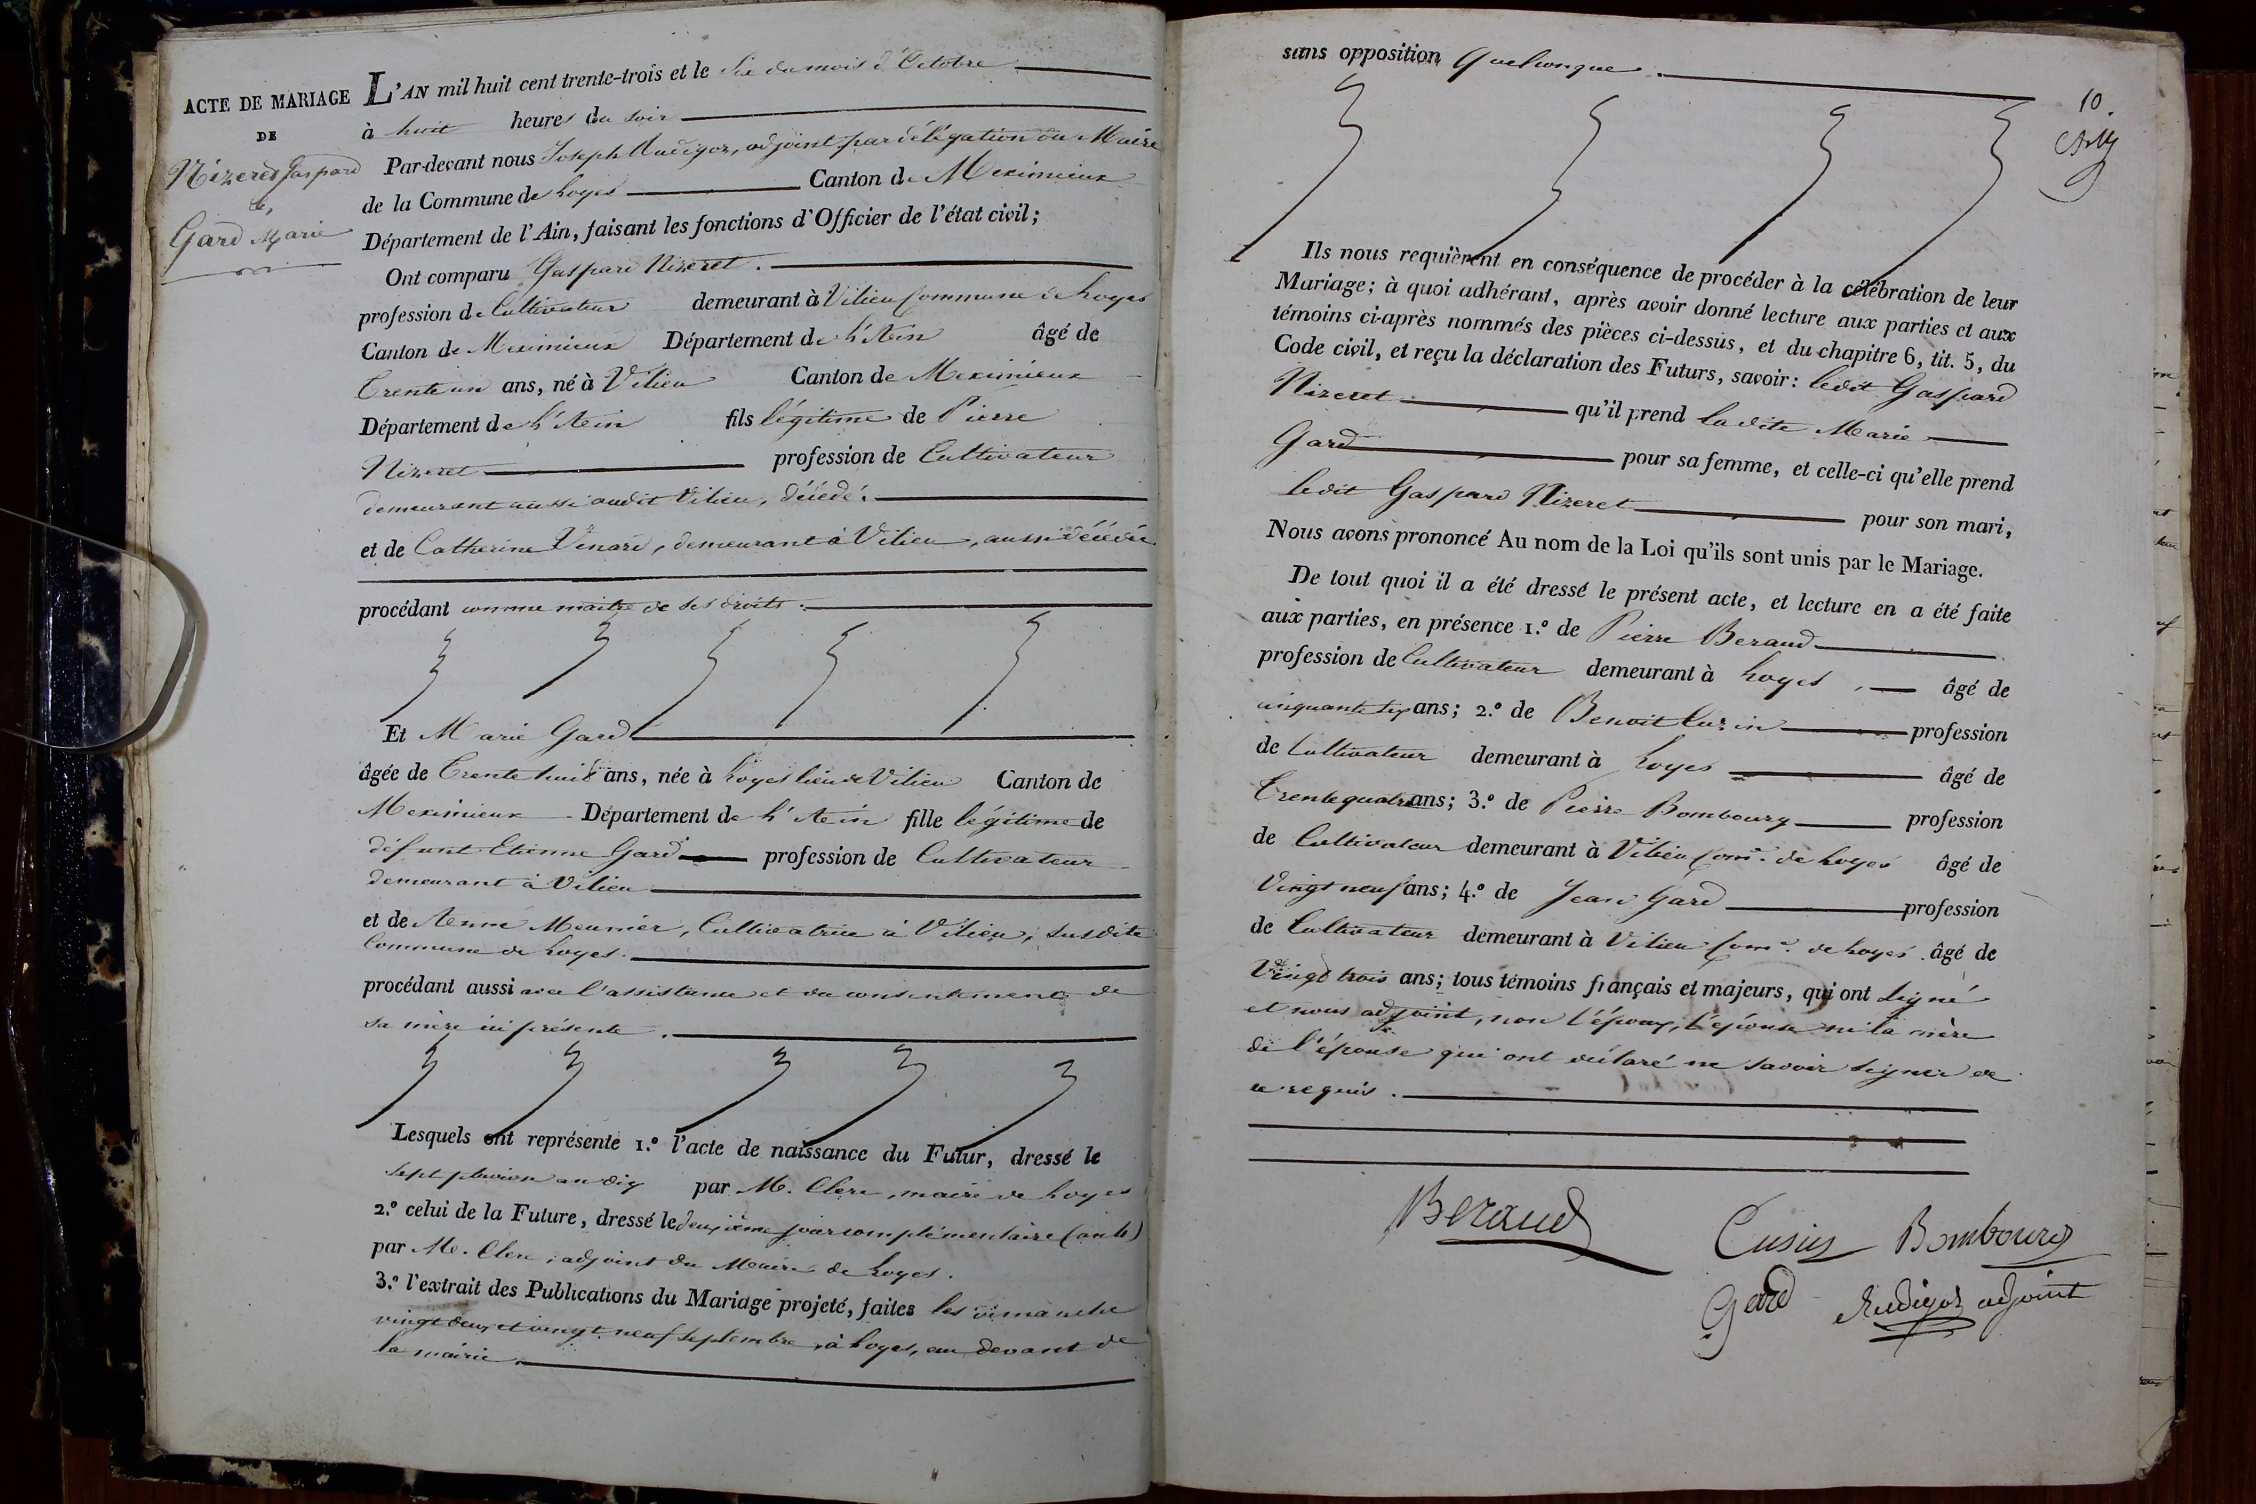 ACTE DE MARIAGE
DE
Nizeret Gaspard
&
Gard Marie
L'AN mil huit cent trente-trois et le Six du mois d'Octobre
à huit heures du soir
Par-devant nous Joseph Rudigoz, adjoint par délégation du Maire
de la Commune de Loyes Canton de Meximieux
Département de l'Ain, faisant les fonctions d'Officier de l'état civil;
Ont comparu Gaspard Nizeret.
profession de Cultivateur demeurant à Vilieu Commune de Loyes
Canton de Meximieux Département de L'Ain âgé de
Trente un ans, né à Vilieu Canton de Meximieux
Département de L'Ain fils légitime de Pierre
Nizeret profession de Cultivateur
demeurant aussi audit Vilieu, décédé.
et de Catherine Venard, demeurant à Vilieu, aussi décédée
procédant comme maitre de ses droits.
Et Marie Gard
âgée de Trente huit ans, née à Loyes lieu de Vilieu Canton de
Meximieux Département de L'Ain fille légitime de
défunt Etienne Gard profession de Cultivateur
demeurant à Vilieu
et de Anne Meunier, Cultivatrice à Vilieu, susdite
Commune de Loyes.
procédant aussi avec l'assistance et du consentement de
sa mère ici présente.
Lesquels ont représenté 1.º l'acte de naissance du Futur, dressé le
sept pluviose an dix par M. Clerc, maire de Loyes
2.º celui de la Future, dressé le deuxième jour complémentaire (an 4)
par M. Clerc, adjoint du Maire de Loyes.
3.º l'extrait des Publications du Mariage projeté, faites les dimanche
vingt deux et vingt neuf septembre, à Loyes, au devant de
la mairie.
sans opposition Quelconque.
10.
Ils nous requièrent en conséquence de procéder à la célébration de leur
Mariage; à quoi adhérant, après avoir donné lecture aux parties et aux
témoins ci-après nommés des pièces ci-dessus, et du chapitre 6, tit. 5, du
Code civil, et reçu la déclaration des Futurs, savoir: ledit Gaspard
Nizeret qu'il prend ladite Marie
Gard pour sa femme, et celle-ci qu'elle prend
ledit Gaspard Nizeret pour son mari,
Nous avons prononcé Au nom de la Loi qu'ils sont unis par le Mariage.
De tout quoi il a été dressé le présent acte, et lecture en a été faite
aux parties, en présence 1.º de Pierre Beraud
profession de Cultivateur demeurant à Loyes, âgé de
cinquante six ans; 2.º de Benoit Cusin profession
de Cultivateur demeurant à Loyes âgé de
Trente quatre ans; 3.º de Pierre Bombourg profession
de Cultivateur demeurant à Vilieu Com.e de Loyes âgé de
Vingt neuf ans; 4.º de Jean Gard profession
de Cultivateur demeurant à Vilieu Com.e de Loyes. âgé de
Vingt trois ans; tous témoins français et majeurs, qui ont signé
et nous adjoint, non l'époux, l'épouse ni la mère
de l'épouse qui ont déclaré ne savoir signer de
ce requis.
Beraud
Cusin Bombourg
Gard Rudigoz adjoint